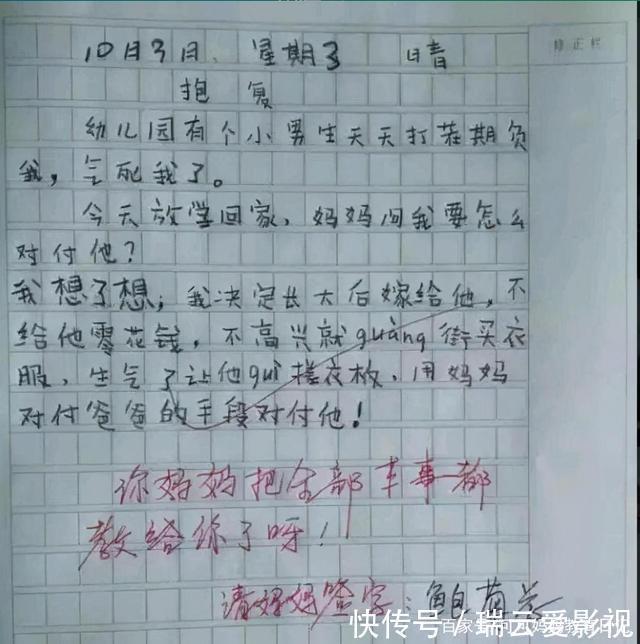 10月3日. 星期3 晴
修正栏
抱复
幼儿园有个小男生天天打茬期负
我，气死我了。
今天放学回家，妈妈问我要怎么
对付他？
我想了想，我决定长大后嫁给他，不
给他零花钱，不高兴就guàng街买衣
服，生气了让他guì搓衣枚，用妈妈
对付爸爸的手段对付他！
你妈妈把全部本事都
教给你了呀！
请妈妈签字：
快传号/瑞云爱影视